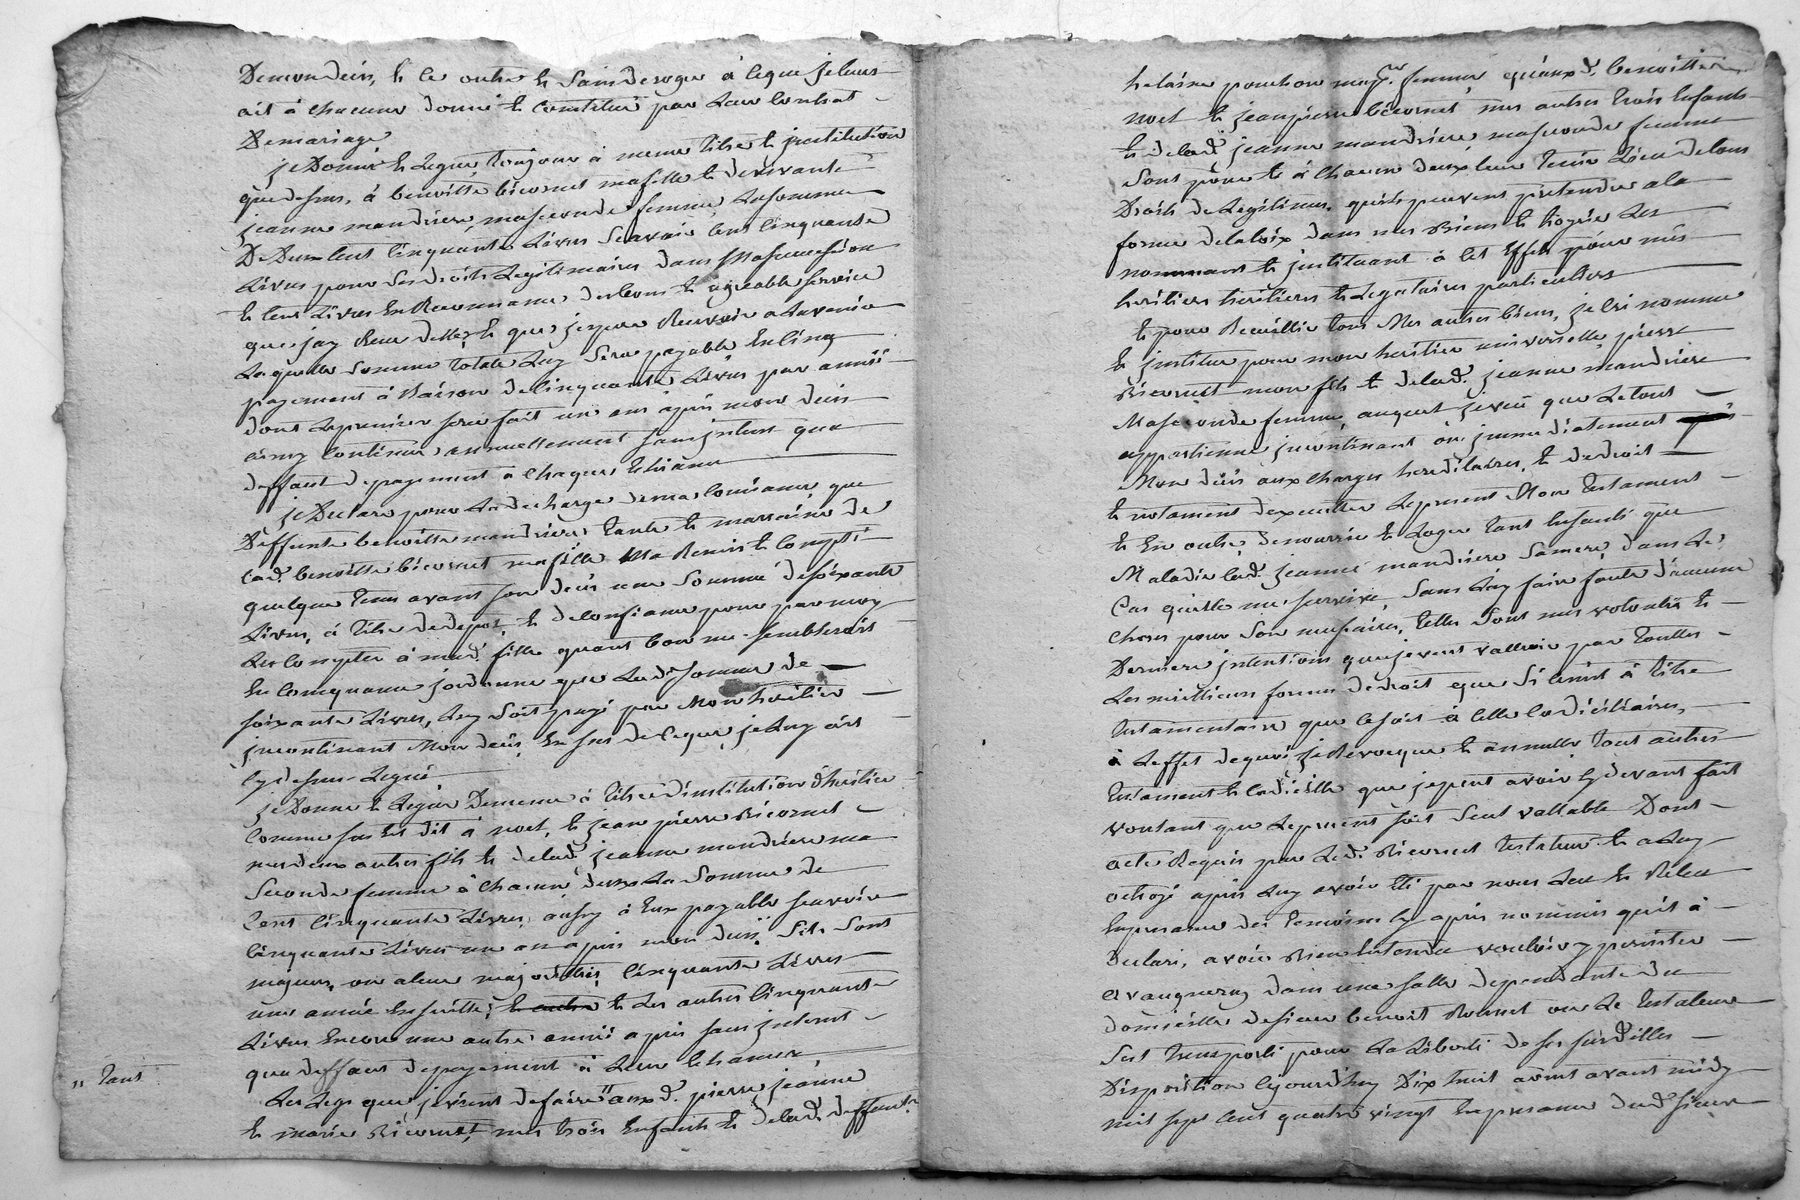 Demon deüis, & ce outre & sans deroger á leque jeleur
ait á chacune donné & constitué par Leur Contrat
Demariage
je Donne & Legue toujour á meme titre d'institution
que dessus, á benoitte bicornet mafille & devivante
jeanne mandriere, maseconde femme, Lasomme
De Deux cent cinquante Livres scavoir cent cinquante
Livres pour ses droits Legitimaires dans Masuccession
& cent Livres En Reconnance desbons & agreable service
que jay Reçu delle, & que jespere Recevoir alavenir
Laquelle somme totale Luy sera payable En cinq
payement á Raison de cinquante Livres par année
dont Lepremier sera fait un ans aprés mon deüis
ainsy continuer annuellement sans jnterest qua
deffaut de payement á chaque Echéance
je Declare pour La decharge dema consiance, que
Deffunte benoitte mandriere tante & marraine de
Lad.e benoitte bicornet mafille Ma Remis & Compté
quelque tems avant son deüis une Somme de soixante
Livres, á titre de depot & deconfiance pour par moy
Les Compter á mad.e fille quant bon me sembleroit
En consequance jordonne que Lad.e somme de
soixante Livres, Luy soit payé par Mon heritier
jncontinant Mon deüis, En sus de ceque jeLuy ait
cy dessus Legué
je Donne & Legue Dememe á titre d'institution d'heritier
Comme sus Est dit á noel, & jean pierre Bicornet
mes deux autres fils & delad.e jeanne mandriere ma
Seconde femme á chacun deux La Somme de
Cent Cinquante Livres, ausy á Eux payable scavoir
cinquante Livres un an aprés mon deüis Sils Sont
majeurs, ou aleur majorittés, cinquante Livres
une année Ensuitte, & Les autres cinquante
Livres Encore une autre année aprés sans jnterest
qua deffaut depayement á Leur Echance,
Les Legs que jeviens defaire " auxd. pierre, jeanne
& marie Bicornet, mes trois Enfants & delad.e deffunte
" tant
helaine ponchon ma p.re femme, quauxd. benoitte
noel & jeanpierre bicornet mes autres trois Enfants
& delad.e jeanne mandriere, maseconde femme
Sont pour & á chacun deux leur tenir Lieu detous
Droits de Legitimes, quils peuvent pretendre ala
forme delaloix dans mes Biens & hoyrie Les
nommant & jnstituant á cet Effet pour mes
heritiers heritieres & Legataires particuliers
& pour Recuillir tous Mes autres biens, jelai nomme
& jnstitue pour mon heritier universelle pierre
Bicornet mon fils & delad.e jeanne mandriere
Maseconde femme, auquel jeveü que Letout
appartienne jncontinant ou jmmediatement
Mon deüis aux charges hereditaires, & dedroit
& notament dexecuter Lepresent Mon testament
& En outre denourrir & Loger tant Enfanté que
Maladie Lad.e jeanne mandriere samere, dans Le
Cas quelle me survive, sans Luy faire faute d'aucune
choses pour Son necessaire, telles Sont mes volontés &
Dernieres jntentions que jeveux valloir par toutles
Les meillieurs formes dedroit que Si cenest á titre
testamentaire que cesoit á celle codicillaires,
á Leffet dequoi je Revocque & annulle tout autres
testament & codicille que jepeut avoir cy devant fait
voulant que Lepresent soit Seul vallable Dont
acte Requis par Led. Bicornet testateur & aLuy
octroyé aprés Luy avoir Été par nous Leu & Releu
Enpresance des temoins cy aprés nommés quil á
Declaré, avoir Bien Entendu vouloir y persister
avaugneray dans une salle dependante du
domicille desieur benoit Brunet ou Le testateur
Sest transporté pour La Liberté de ses susdittes
Disposition cejourd'huy Dix huit aoust avant midy
mil sept cent quatre vingt Enpresance dud. sieur